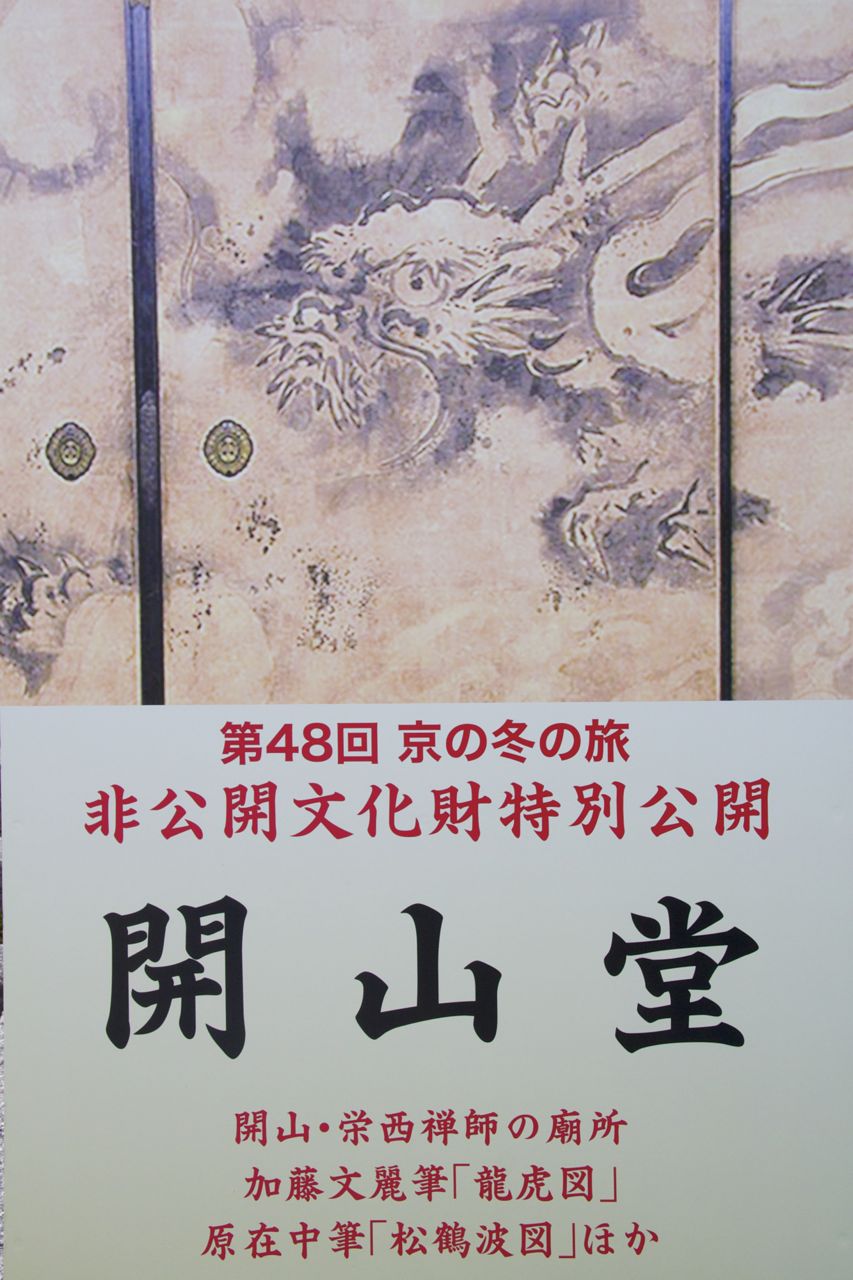 第48回 京の冬の旅
非公開文化財特別公開
開山堂
開山・栄西禅師の廟所
加藤文麗筆「龍虎図」
原在中筆「松鶴波図」ほか